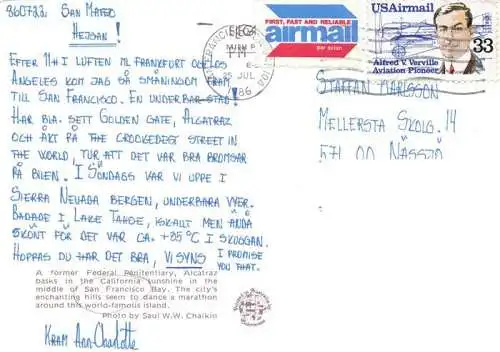 860722 SAN MATEO
HEJSAN!
EFTER 11H I LUFTEN M FRANKFURT O LOS
ANGELES KOM JAG SÅ SMÅNINGOM FRAM
TILL SAN FRANCISCO. EN UNDERBAR STAD!
HAR BL.A. SETT GOLDEN GATE, ALCATRAZ
OCH ÅKT PÅ THE CROOKEDEST STREET IN
THE WORLD, TUR ATT DET VAR BRA BROMSAR
PÅ BILEN. I SÖNDAGS VAR VI UPPE I
SIERRA NEVADA BERGEN, UNDERBARA VYER.
BADADE I LAKE TAHOE, ISKALLT MEN ÄNDÅ
SKÖNT FÖR DET VAR CA. +35°C I SKUGGAN.
HOPPAS DU HAR DET BRA, VI SYNS I PROMISE
YOU THAT.
A former Federal Penitentiary, Alcatraz
basks in the California sunshine in the
middle of San Francisco Bay. The city's
enchanting hills seem to dance a marathon
around this world-famous island.
Photo by Saul W.W. Chaikin
KRAM Ann-Charlotte
PM
25 JUL
'86
FIRST, FAST AND RELIABLE
airmail
par avion
USAirmail
33
Alfred V. Verville
Aviation Pioneer
STAFFAN
MELLERSTA SKOLG. 14
571 00 NÄSSJÖ